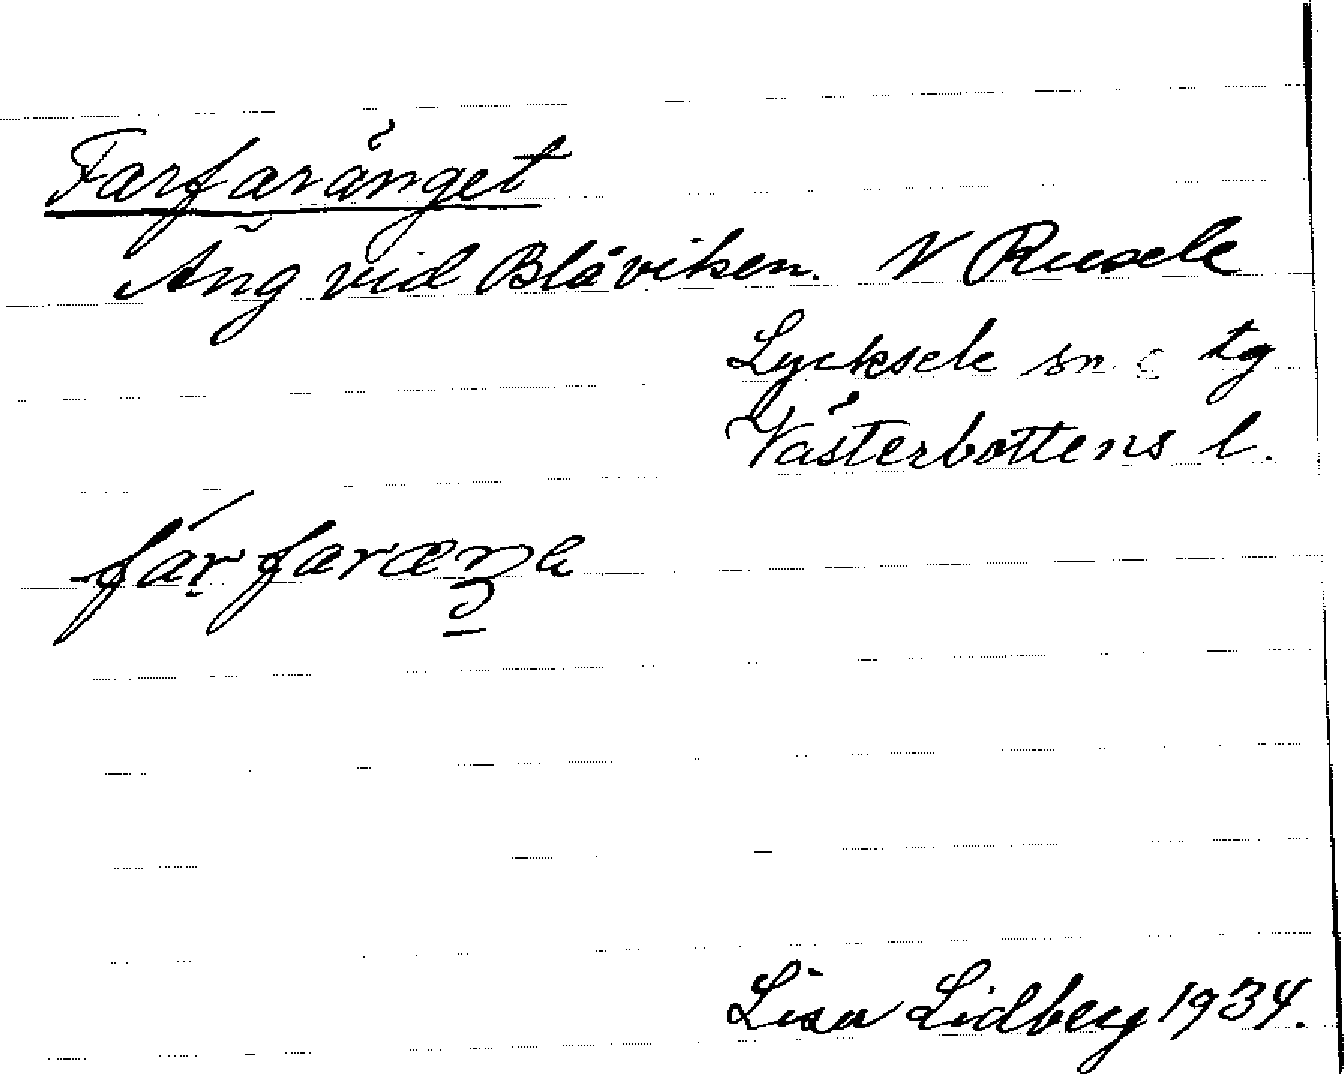 Farfaränget
Äng vid Blåviken. N Rusele
Lycksele sn o tg
Västerbottens l.
fárfaræŋa
Lisa Lidberg 1934.